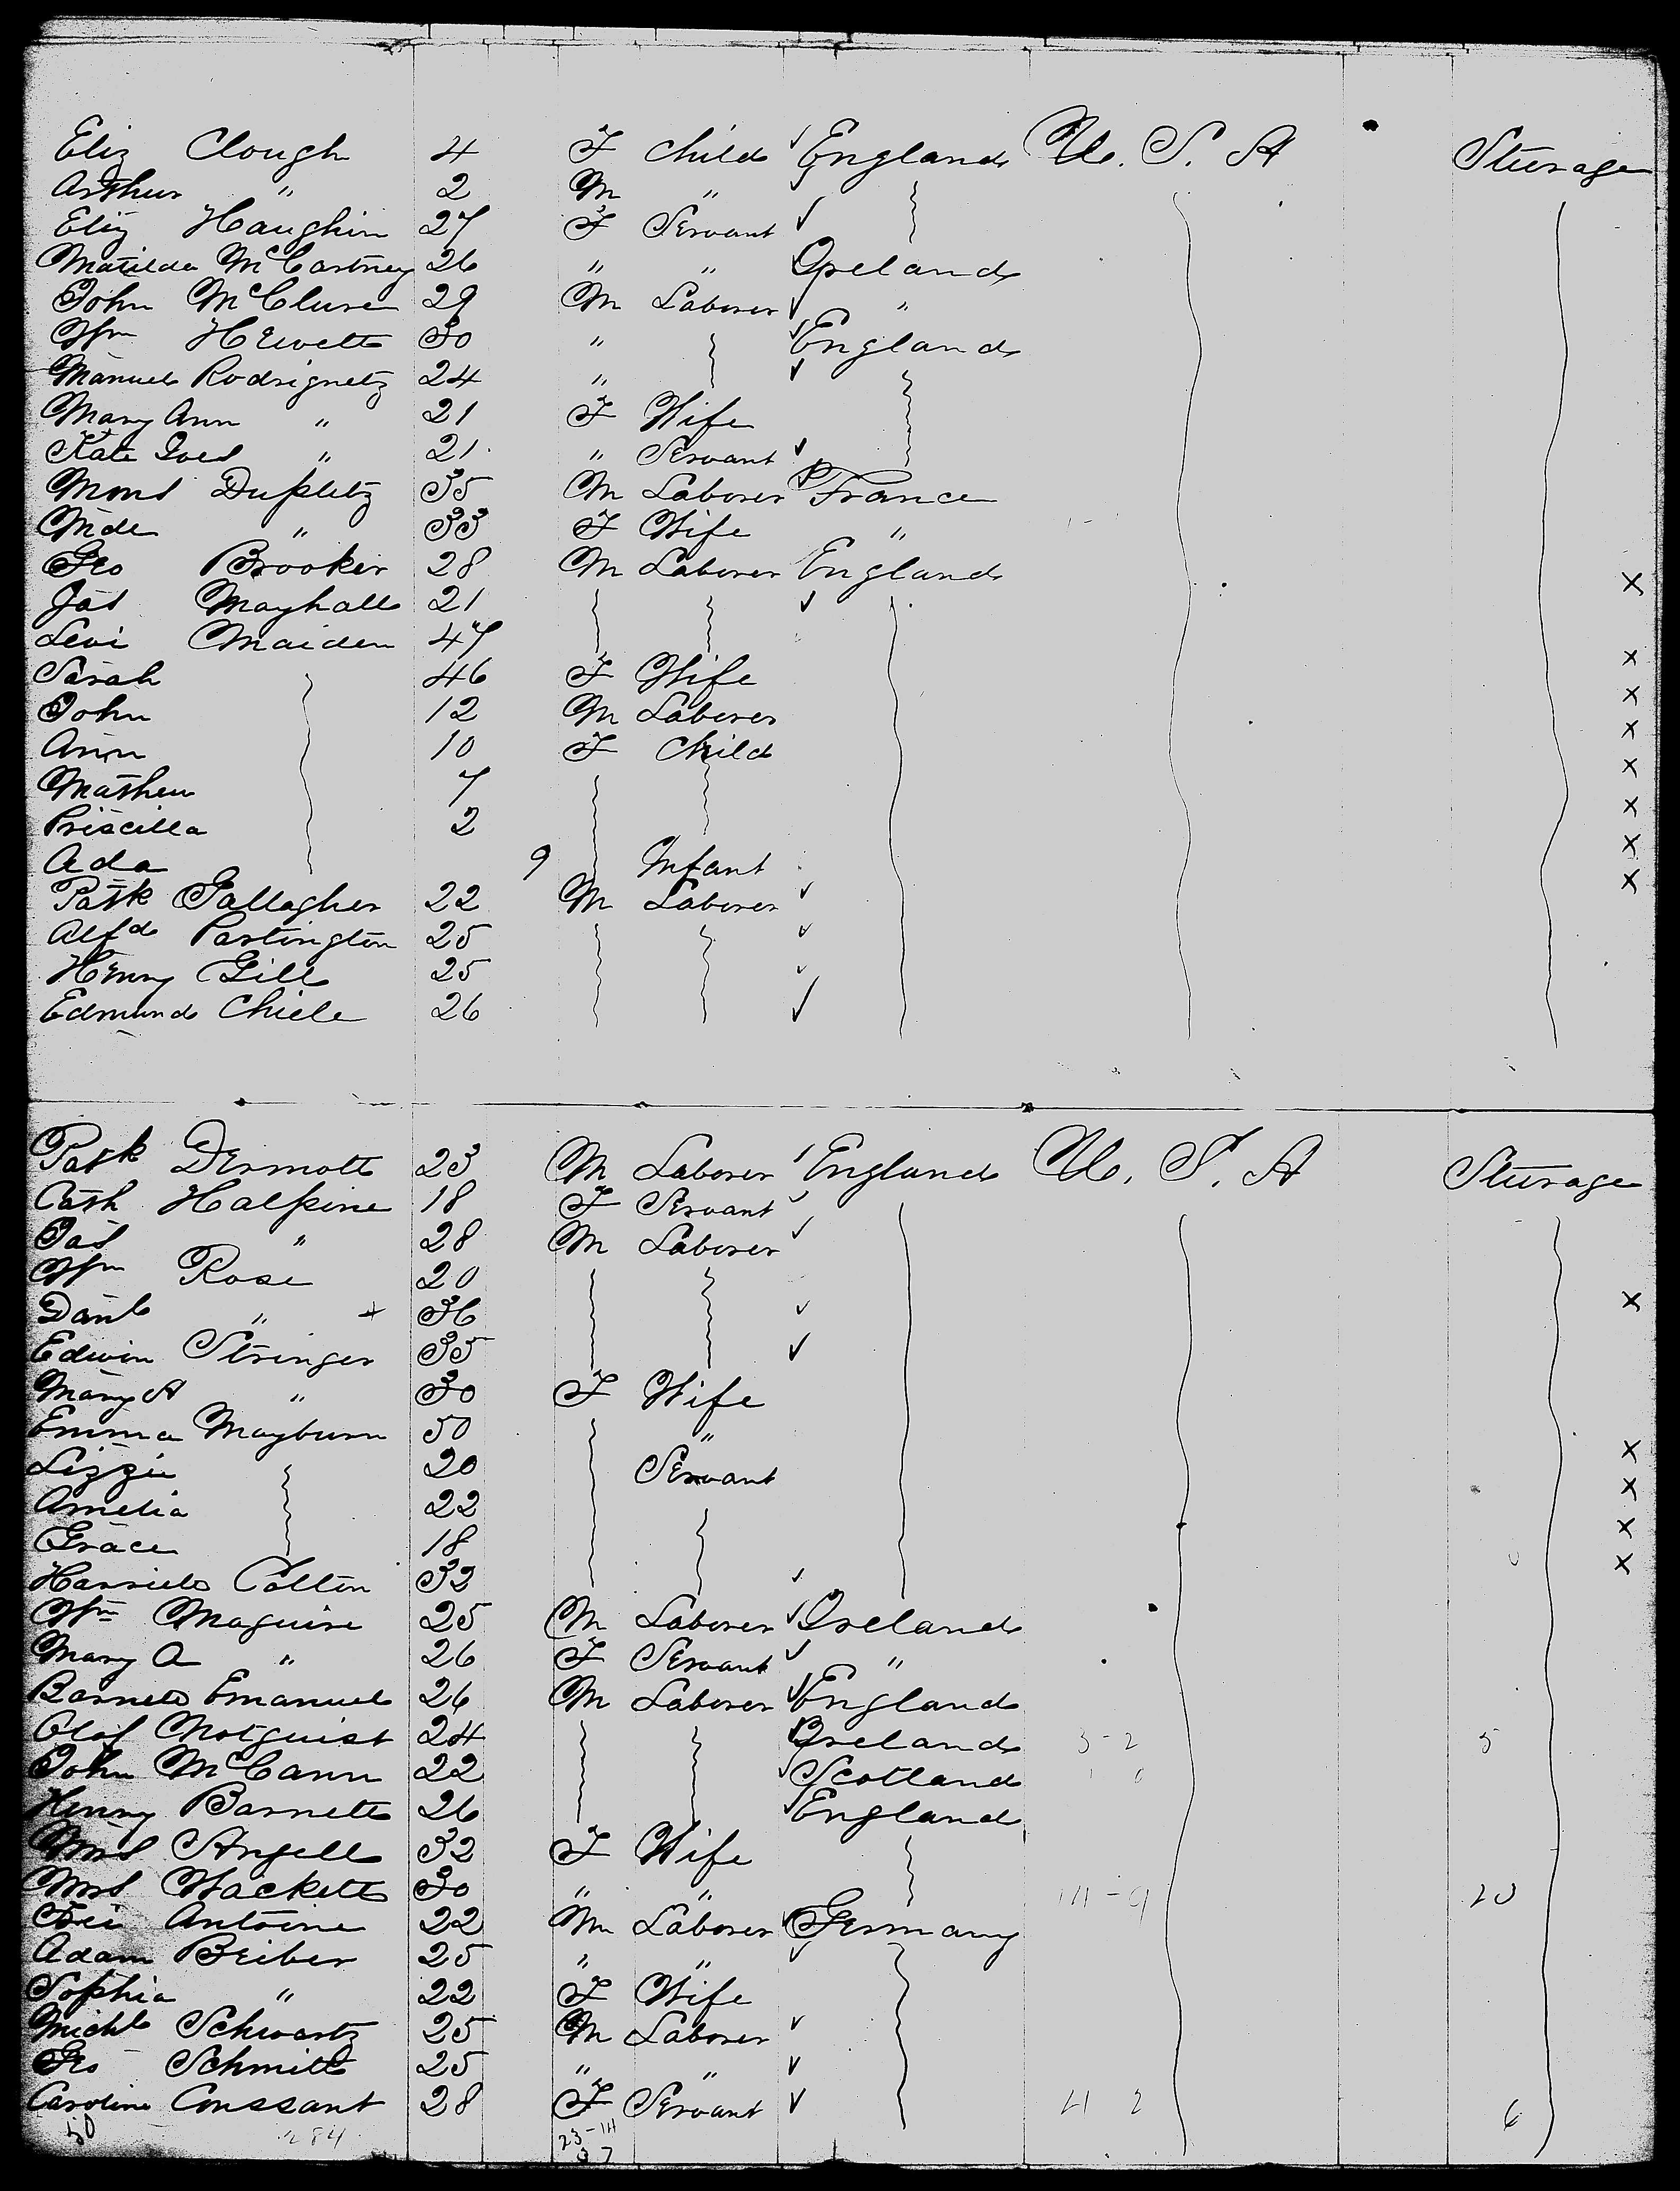 Eliz Clough 4 F Child ✓ England U. S. A Sturage
Arthur " 2 M "
Eliz Haughin 27 F Servant ✓
Matilda McCartney 26 " " Ireland
John McClure 29 M Laborer ✓ "
Wm Hewett 30 " ✓ England
Manuel Rodrignetz 24 " ✓
Mary Ann " 21 F Wife
Kate Ives " 21 " Servant ✓
Mons Dupletz 35 M Laborer ✓ France
Mde " 33 F Wife "
Geo Brooker 28 M Laborer England x
Jas Mayhall 21 ✓
Levi Maiden 47 x
Sarah 46 F Wife x
John 12 M Laborer x
Ann 10 F Child x
Mathew 7 x
Priscilla 2 x
Ada 9 Infant x
Patk Gallagher 22 M Laborer ✓
Alfd Partington 25 ✓
Henry Gill 25 ✓
Edmund Chiele 26 ✓
Patk Dermott 23 M Laborer ✓ England U. S. A Sturage
Cath Halpine 18 F Servant ✓
Jas " 28 M Laborer ✓
Wm Rose 20 x
Danl " + 36 ✓
Edwin Stringer 35 ✓
Mary A " 30 F Wife
Emma Mayburn 50 " x
Lizzie 20 Servant x
Amelia 22 x
Grace 18 x
Harriet Colton 32 ✓
Wm Maguire 25 M Laborer ✓ Ireland
Mary A " 26 F Servant ✓ "
Barnett Emanuel 26 M Laborer ✓ England
Olof Notquist 24 Ireland 3-2 5
John McCann 22 ✓ Scotland
Henry Barnett 26 ✓ England
Mrs Angell 32 F Wife
Mrs Hackett 30 " " 14-9 20
Antoine 22 M Laborer ✓ Germany
Adam Beiber 25 " " ✓
Sophia " 22 F Wife
Michl Schwartz 25 M Laborer ✓
Geo Schmitt 25 " " ✓
Caroline Conssant 28 F Servant ✓ 4 2 6
50 284 23-14
37